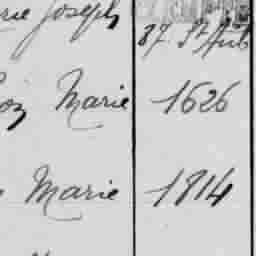 Joseph
87 St Aub
Marie 1626
Marie 1814